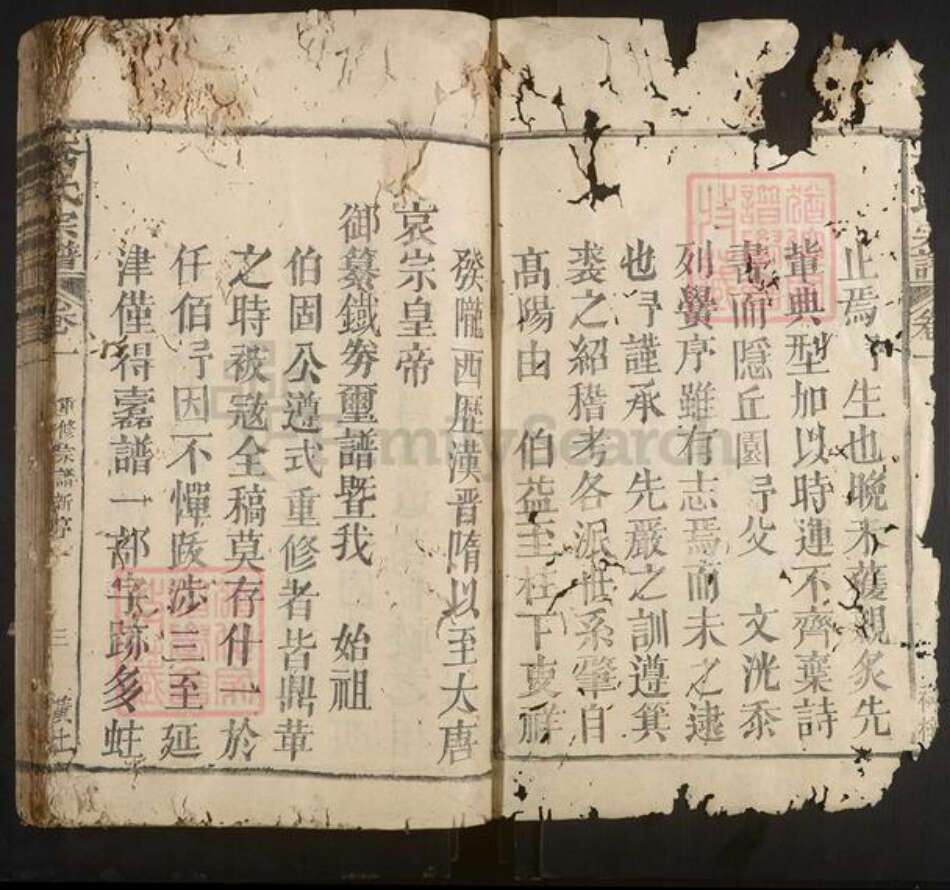 止焉 生也晚未獲親炙先
輩典型加以時運不齊棄詩
書而隱丘園予父 文洸忝
列黌序雖有志焉而未之逮
也予謹承 先嚴之訓遵箕
裘之紹稽考各派世系肇自
高陽由 伯益至柱下吏祥
發隴西歷漢晉隋以至大唐
哀宗皇帝
御纂鐵券璽譜暨我 始祖
伯固公遵式重修者皆鼎革
之時被寇全稿莫存什一於
仟佰予因不憚跋涉三至延
津僅得嘉譜一部字跡多蛀
氏宗譜 卷一 重修宗譜新序 三
FamilySearch